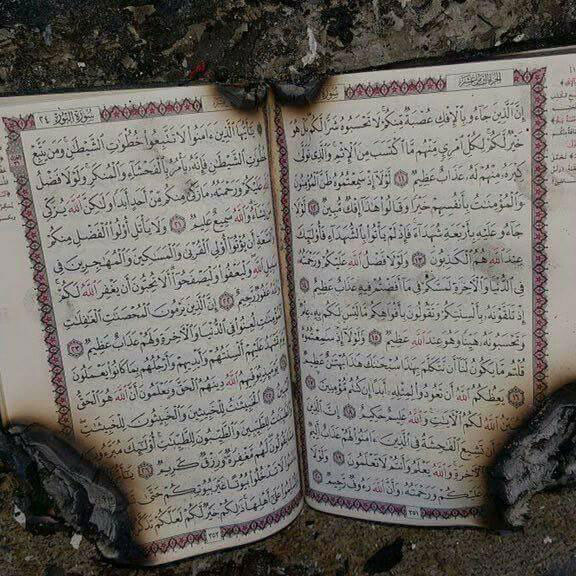 الجزء الثامن عشر
سورة
إِنَّ ٱلَّذِينَ جَآءُو بِٱلْإِفْكِ عُصْبَةٌ مِّنكُمْ لَا تَحْسَبُوهُ شَرًّا لَّكُم بَلْ هُوَ
خَيْرٌ لَّكُمْ لِكُلِّ ٱمْرِئٍ مِّنْهُم مَّا ٱكْتَسَبَ مِنَ ٱلْإِثْمِ وَٱلَّذِى تَوَلَّىٰ
كِبْرَهُۥ مِنْهُمْ لَهُۥ عَذَابٌ عَظِيمٌ ١١ لَّوْلَآ إِذْ سَمِعْتُمُوهُ ظَنَّ ٱلْمُؤْمِنُونَ
وَٱلْمُؤْمِنَٰتُ بِأَنفُسِهِمْ خَيْرًا وَقَالُوا۟ هَٰذَآ إِفْكٌ مُّبِينٌ ١٢ لَّوْلَا
جَآءُو عَلَيْهِ بِأَرْبَعَةِ شُهَدَآءَ فَإِذْ لَمْ يَأْتُوا۟ بِٱلشُّهَدَآءِ فَأُو۟لَٰٓئِكَ
عِندَ ٱللَّهِ هُمُ ٱلْكَٰذِبُونَ ١٣ وَلَوْلَا فَضْلُ ٱللَّهِ عَلَيْكُمْ وَرَحْمَتُهُۥ
فِى ٱلدُّنْيَا وَٱلْءَاخِرَةِ لَمَسَّكُمْ فِى مَآ أَفَضْتُمْ فِيهِ عَذَابٌ عَظِيمٌ ١٤
إِذْ تَلَقَّوْنَهُۥ بِأَلْسِنَتِكُمْ وَتَقُولُونَ بِأَفْوَاهِكُم مَّا لَيْسَ لَكُم بِهِۦ عِلْمٌ
وَتَحْسَبُونَهُۥ هَيِّنًا وَهُوَ عِندَ ٱللَّهِ عَظِيمٌ ١٥ وَلَوْلَآ إِذْ سَمِعْتُمُوهُ
قُلْتُم مَّا يَكُونُ لَنَآ أَن نَّتَكَلَّمَ بِهَٰذَا سُبْحَٰنَكَ هَٰذَا بُهْتَٰنٌ عَظِيمٌ ١٦
يَعِظُكُمُ ٱللَّهُ أَن تَعُودُوا۟ لِمِثْلِهِۦٓ أَبَدًا إِن كُنتُم مُّؤْمِنِينَ ١٧
وَيُبَيِّنُ ٱللَّهُ لَكُمُ ٱلْءَايَٰتِ وَٱللَّهُ عَلِيمٌ حَكِيمٌ ١٨ إِنَّ ٱلَّذِينَ
أَن تَشِيعَ ٱلْفَٰحِشَةُ فِى ٱلَّذِينَ ءَامَنُوا۟ لَهُمْ عَذَابٌ أَلِيمٌ
وَٱلْءَاخِرَةِ وَٱللَّهُ يَعْلَمُ وَأَنتُمْ لَا تَعْلَمُونَ ١٩ وَلَوْلَا
عَلَيْكُمْ وَرَحْمَتُهُۥ وَأَنَّ ٱللَّهَ رَءُوفٌ رَّحِيمٌ ٢٠
٣٥١
سورة النور ٢٤
يَٰٓأَيُّهَا ٱلَّذِينَ ءَامَنُوا۟ لَا تَتَّبِعُوا۟ خُطُوَٰتِ ٱلشَّيْطَٰنِ وَمَن يَتَّبِعْ
خُطُوَٰتِ ٱلشَّيْطَٰنِ فَإِنَّهُۥ يَأْمُرُ بِٱلْفَحْشَآءِ وَٱلْمُنكَرِ وَلَوْلَا فَضْلُ
ٱللَّهِ عَلَيْكُمْ وَرَحْمَتُهُۥ مَا زَكَىٰ مِنكُم مِّنْ أَحَدٍ أَبَدًا وَلَٰكِنَّ ٱللَّهَ يُزَكِّى
مَن يَشَآءُ وَٱللَّهُ سَمِيعٌ عَلِيمٌ ٢١ وَلَا يَأْتَلِ أُو۟لُوا۟ ٱلْفَضْلِ مِنكُمْ
وَٱلسَّعَةِ أَن يُؤْتُوٓا۟ أُو۟لِى ٱلْقُرْبَىٰ وَٱلْمَسَٰكِينَ وَٱلْمُهَٰجِرِينَ فِى
سَبِيلِ ٱللَّهِ وَلْيَعْفُوا۟ وَلْيَصْفَحُوٓا۟ أَلَا تُحِبُّونَ أَن يَغْفِرَ ٱللَّهُ لَكُمْ
وَٱللَّهُ غَفُورٌ رَّحِيمٌ ٢٢ إِنَّ ٱلَّذِينَ يَرْمُونَ ٱلْمُحْصَنَٰتِ ٱلْغَٰفِلَٰتِ
ٱلْمُؤْمِنَٰتِ لُعِنُوا۟ فِى ٱلدُّنْيَا وَٱلْءَاخِرَةِ وَلَهُمْ عَذَابٌ عَظِيمٌ ٢٣
يَوْمَ تَشْهَدُ عَلَيْهِمْ أَلْسِنَتُهُمْ وَأَيْدِيهِمْ وَأَرْجُلُهُم بِمَا كَانُوا۟ يَعْمَلُونَ
٢٤ يَوْمَئِذٍ يُوَفِّيهِمُ ٱللَّهُ دِينَهُمُ ٱلْحَقَّ وَيَعْلَمُونَ أَنَّ ٱللَّهَ هُوَ ٱلْحَقُّ
ٱلْمُبِينُ ٢٥ ٱلْخَبِيثَٰتُ لِلْخَبِيثِينَ وَٱلْخَبِيثُونَ لِلْخَبِيثَٰتِ
وَٱلطَّيِّبَٰتُ لِلطَّيِّبِينَ وَٱلطَّيِّبُونَ لِلطَّيِّبَٰتِ أُو۟لَٰٓئِكَ مُبَرَّءُونَ
مِمَّا يَقُولُونَ لَهُم مَّغْفِرَةٌ وَرِزْقٌ كَرِيمٌ ٢٦ يَٰٓأَيُّهَا
لَا تَدْخُلُوا۟ بُيُوتًا غَيْرَ بُيُوتِكُمْ حَتَّىٰ
وَتُسَلِّمُوا۟ عَلَىٰٓ أَهْلِهَا ذَٰلِكُمْ خَيْرٌ لَّكُمْ لَعَلَّكُمْ تَذَكَّرُونَ
٣٥٢